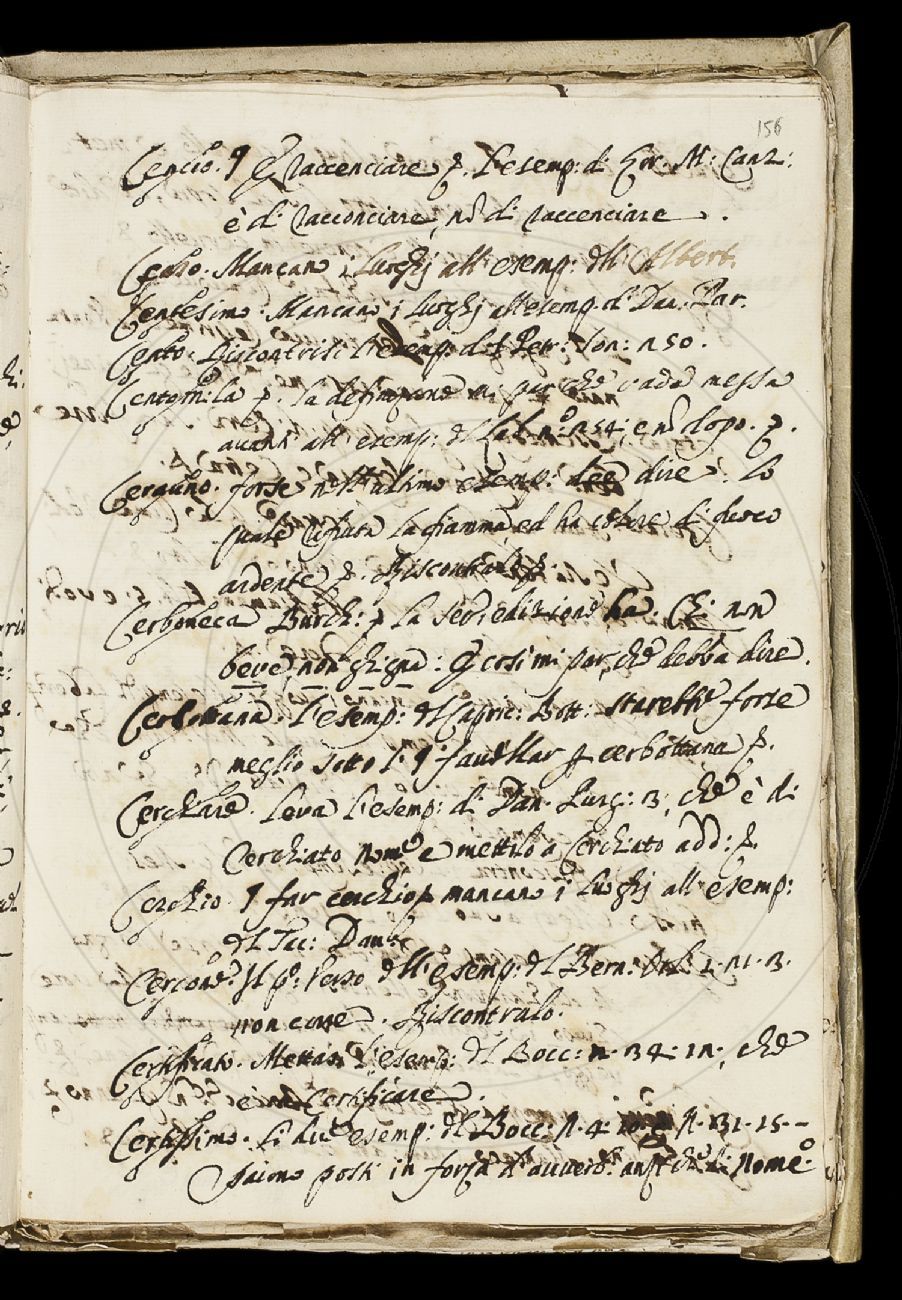 156
Cencio. ¶ E raccenciare p. L'esemp: di Err. M: Canz:
è di racconciare, nō di raccenciare.
Mancano i luoghi all' esemp: dll' Albert.
Centesimo. Mancano i luoghi all'esemp. di Dan. Par.
Cento. Riscontrisi l'esemp: del Petr: Son: n 50.
p. la definizione mi par che vada messa
avanti all' esemp: e nō dopo. p.
forse nell' ultimo esemp: dee dire: Lo
quale la fiamma, ed ha colore di fuoco
ardente p. Riscontrisi p.
Cerboneca Burch: p la sed: edizione ha. Chi non
beve, non ghigna: E così mi par, che debba dire.
Cerbottana. L'esemp: dl Capric: Bott: starebbe forse
meglio sotto l' ¶ favellar p cerbottana p.
Cerchiare. Leva l'esemp: di Dan. Purg: 3, che è di
Cerchiato nome e mettilo a Cerchiato add: p.
Cerchio. ¶ far cerchio p mancano i luoghi all' esemp:
dl Tac: Dav:
Cercone. Il p.º verso dll' esemp: dl Bern: Orl: 2. 21. 3.
non corre. Riscontralo.
Certificato. Mettasi l'esemp: dl Bocc: n. 34: 12, che
è certificare.
Certissimo. Li due esemp: dl Bocc: n. 4. 10. n. 31. 15. –
saiono posti in forza d' avverb: anzi che di nome: